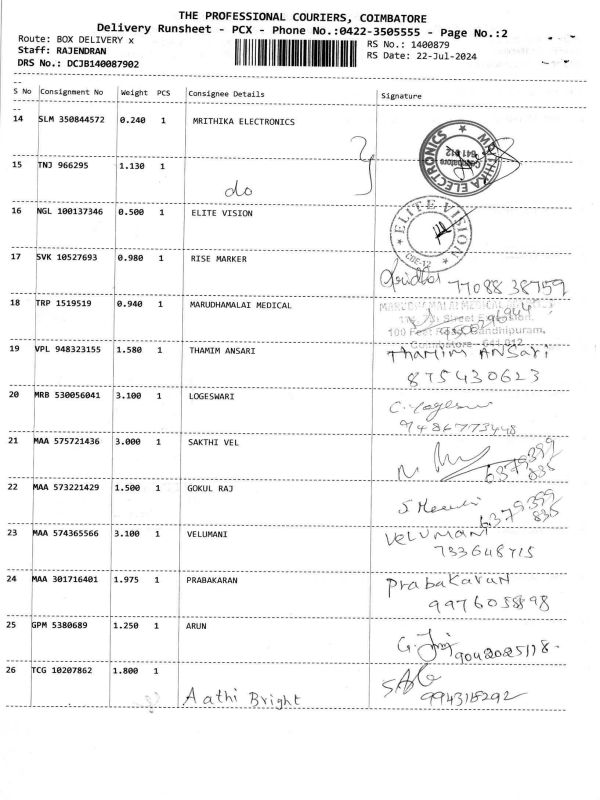 THE PROFESSIONAL COURIERS, COIMBATORE
Delivery Runsheet - PCX - Phone No.:0422-3505555 - Page No.:2
Route: BOX DELIVERY x
RS No.: 1400879
Staff: RAJENDRAN
RS Date: 22-Jul-2024
DRS No.: DCJB140087902
S No Consignment No Weight PCS Consignee Details Signature
14 SLM 350844572 0.240 1 MRITHIKA ELECTRONICS
MRITHIKA ELECTRONICS
15 TNJ 966295 1.130 1
do
16 NGL 100137346 0.500 1 ELITE VISION
ELITE VISION
CBE-12
17 SVK 10527693 0.980 1 RISE MARKER
7708838759
18 TRP 1519519 0.940 1 MARUDHAMALAI MEDICAL
Coimbatore - 641 012
19 VPL 948323155 1.580 1 THAMIM ANSARI
Thamim ANSari
875430623
20 MRB 530056041 3.100 1 LOGESWARI
9486773448
21 MAA 575721436 3.000 1 SAKTHI VEL
6379399
835
22 MAA 573221429 1.500 1 GOKUL RAJ
6379399
835
23 MAA 574365566 3.100 1 VELUMANI
VELUMANI
24 MAA 301716401 1.975 1 PRABAKARAN
Prabakaran
25 GPM 5380689 1.250 1 ARUN
26 TCG 10207862 1.800 1
Aathi Bright